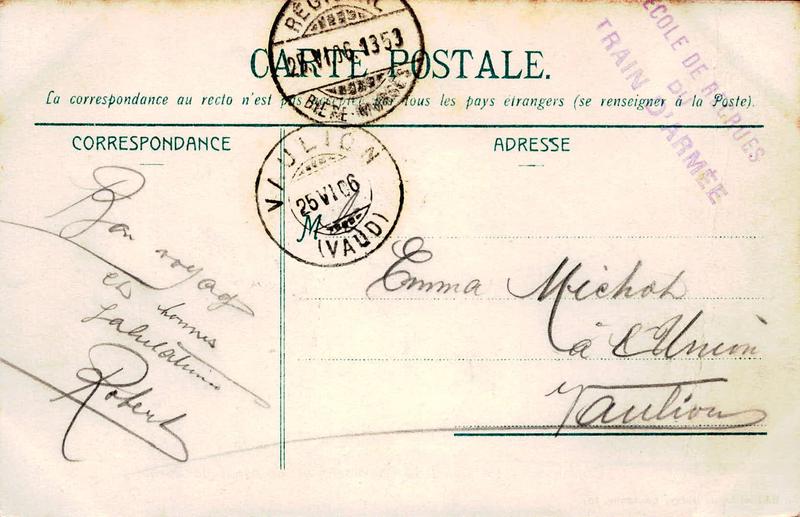 RÉGIONAL
25 VI 06-1353
BIÈRE-MORGES
ÉCOLE DE RECRUES
DU
TRAIN D'ARMÉE
CARTE POSTALE.
La correspondance au recto n'est pas tous les pays étrangers (se renseigner à la Poste).
CORRESPONDANCE
ADRESSE
VAULION
25 VI 06
(VAUD)
M
Bon voyag
et bonnes
salutations
Robert
Emma Michot
à l'Union
Vaulion